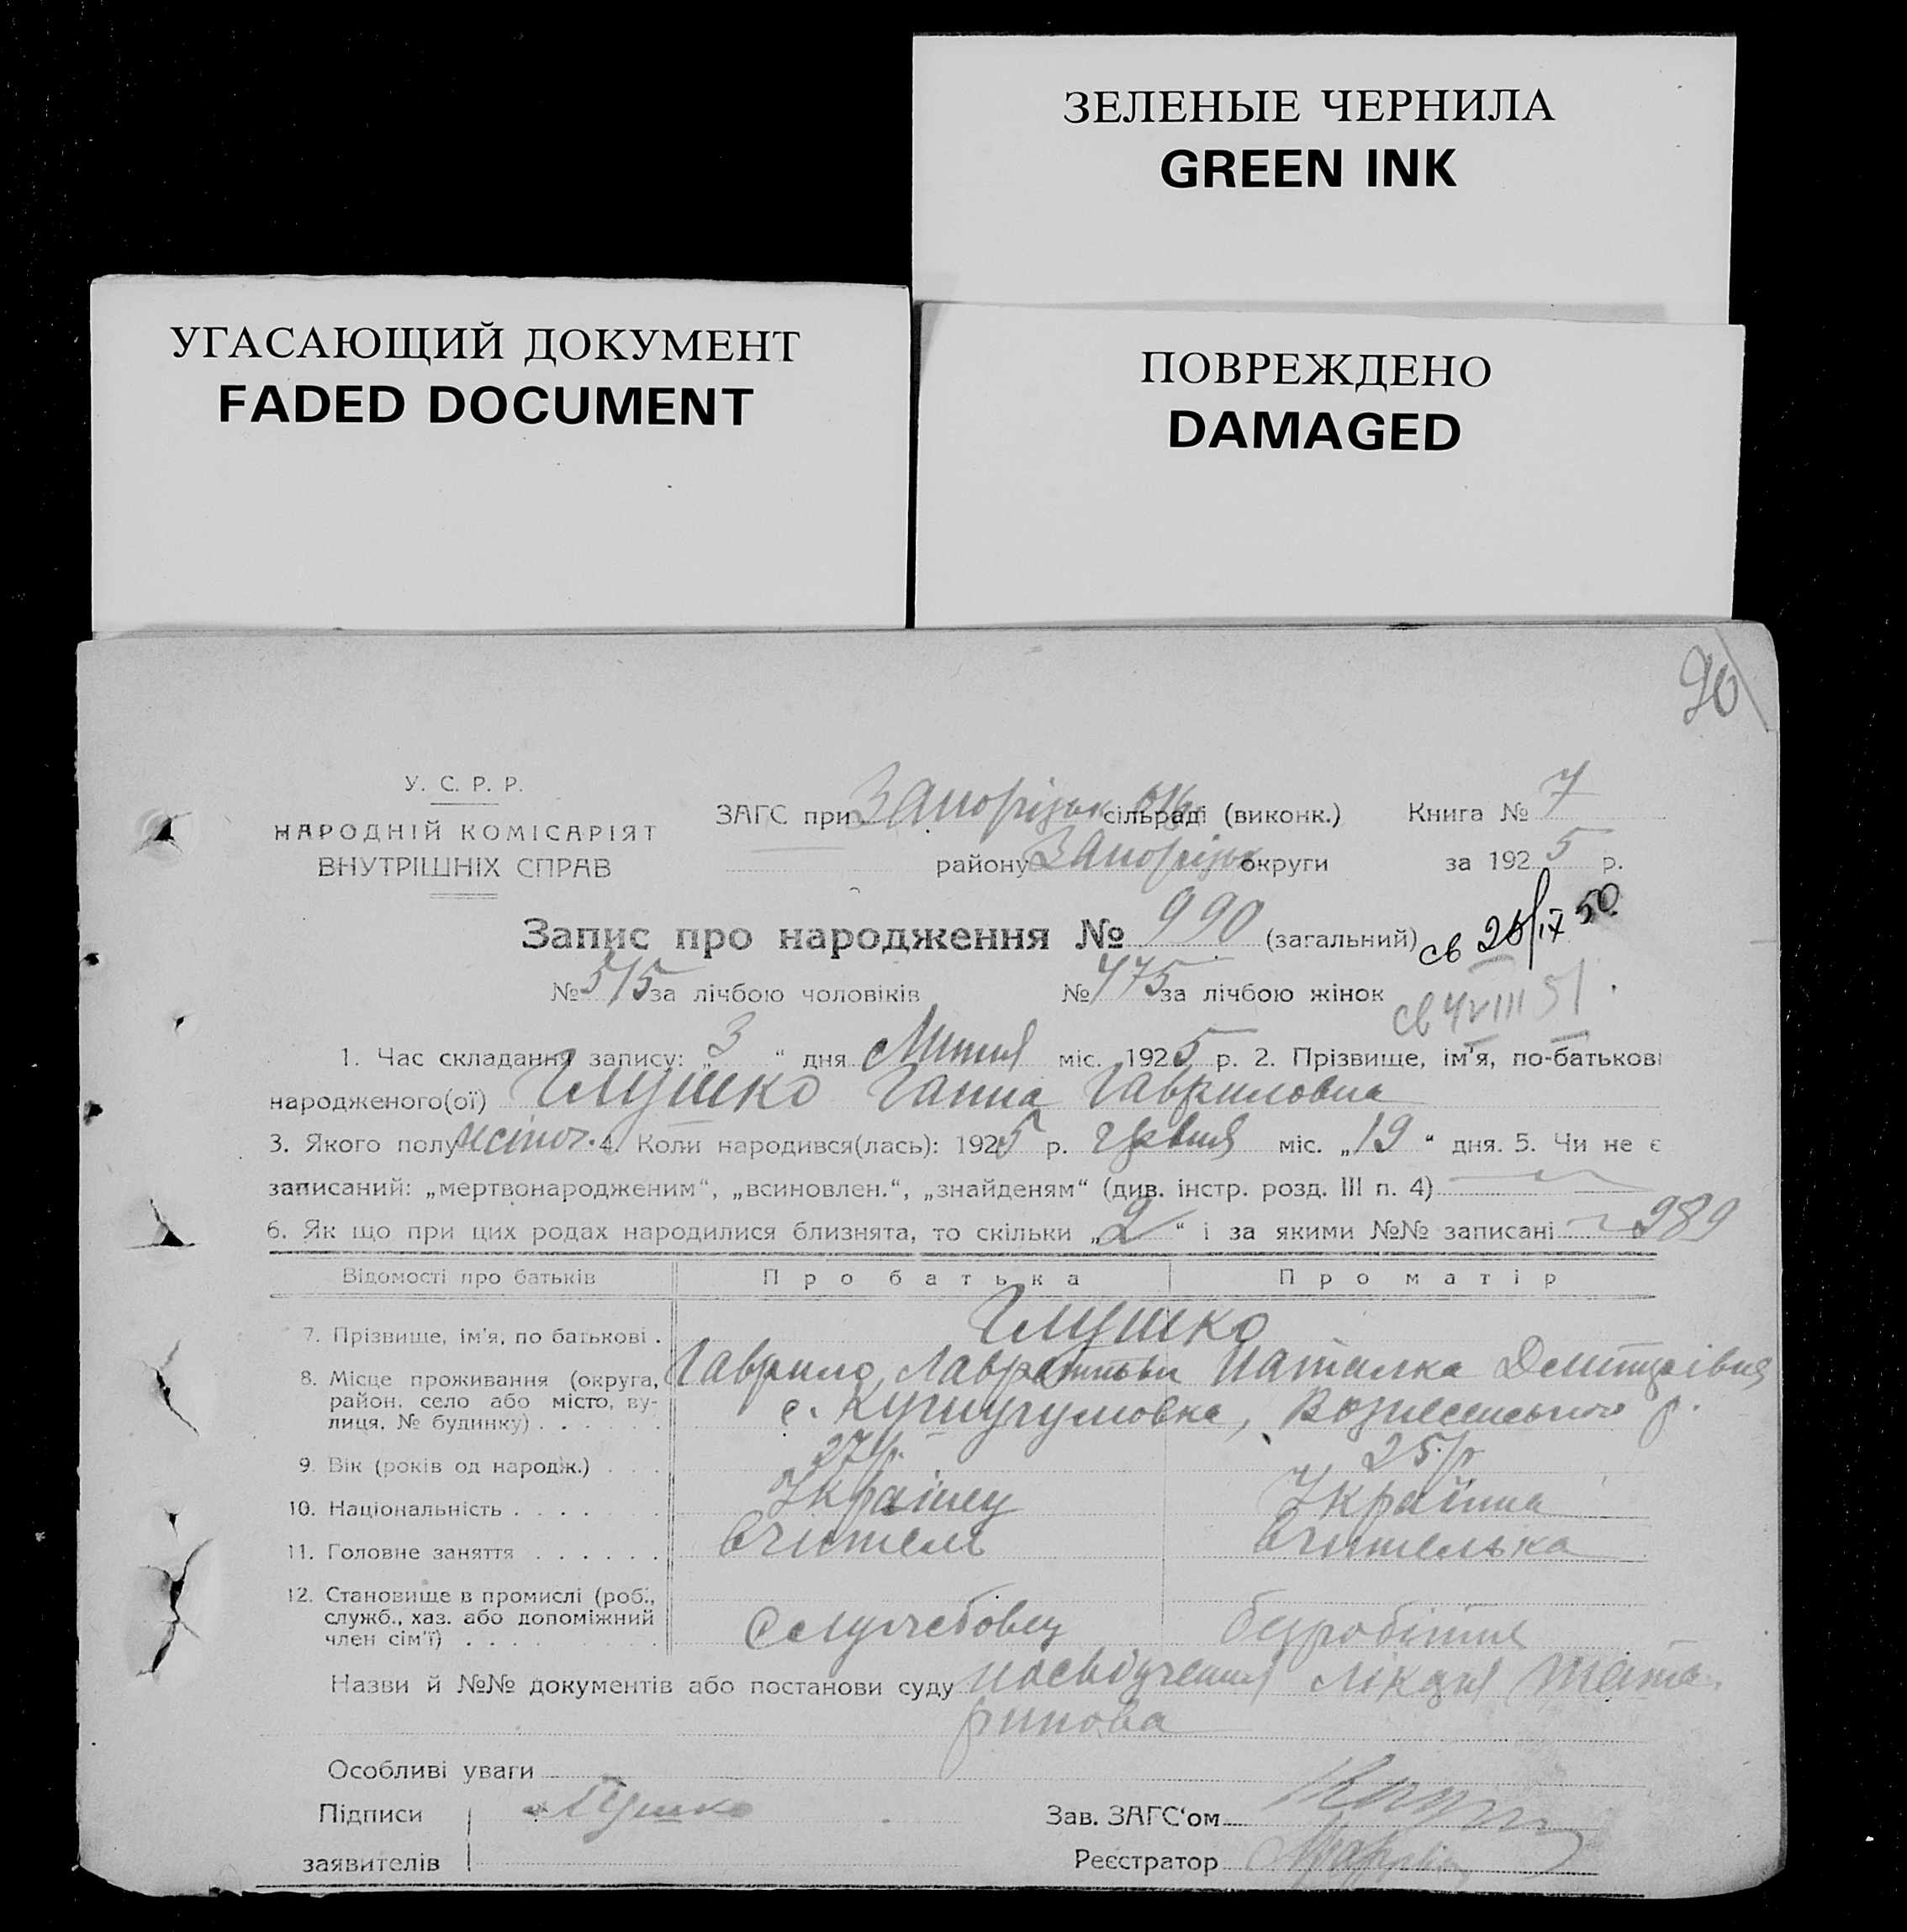 ЗЕЛЕНЫЕ ЧЕРНИЛА
GREEN INK
УГАСАЮЩИЙ ДОКУМЕНТ
FADED DOCUMENT
ПОВРЕЖДЕНО
DAMAGED
90
У. С. Р. Р.
НАРОДНІЙ КОМІСАРІЯТ
ВНУТРІШНІХ СПРАВ
ЗАГС при Запорізьк сільраді (виконк.) Книга № 7
району Запорізьк округи за 1925 р.
Запис про народження № 990 (загальний) св 26/IX 50
№ 515 за лічбою чоловіків № 475 за лічбою жінок
св 4 VIII 51
1. Час складання запису: „3“ дня Липня міс. 1925 р. 2. Прізвище, ім'я, по-батькові
народженого(ої) Глушко Ганна Гавриловна
3. Якого полу жіноч. 4. Коли народився(лась): 1925 р. червня міс. „19“ дня. 5. Чи не є
записаний: „мертвонародженим“, „всиновлен.“, „знайденям“ (див. інстр. розд. III п. 4)
6. Як що при цих родах народилися близнята, то скільки „2“ і за якими №№ записані 989
Відомості про батьків Про батька Про матір
7. Прізвище, ім'я, по батькові . Глушко
Гаврило Наталка
8. Місце проживання (округа, район, село або місто, ву-
лиця, № будинку) . . . . . . с. Кушугумовка, Вознесенського р.
9. Вік (років од народж.) . . . 27 р. 25 р
10. Національність . . . . . . Українец Українка
11. Головне заняття . . . . . . Вчитель Вчителька
12. Становище в промислі (роб.,
служб., хаз. або допоміжний
член сім'ї) . . . . . . Служебовец безробітня
Назви й №№ документів або постанови суду посвідчення лікаря Тата-
ринова
Особливі уваги
Підписи Глушко Зав. ЗАГС'ом
заявителів Реєстратор